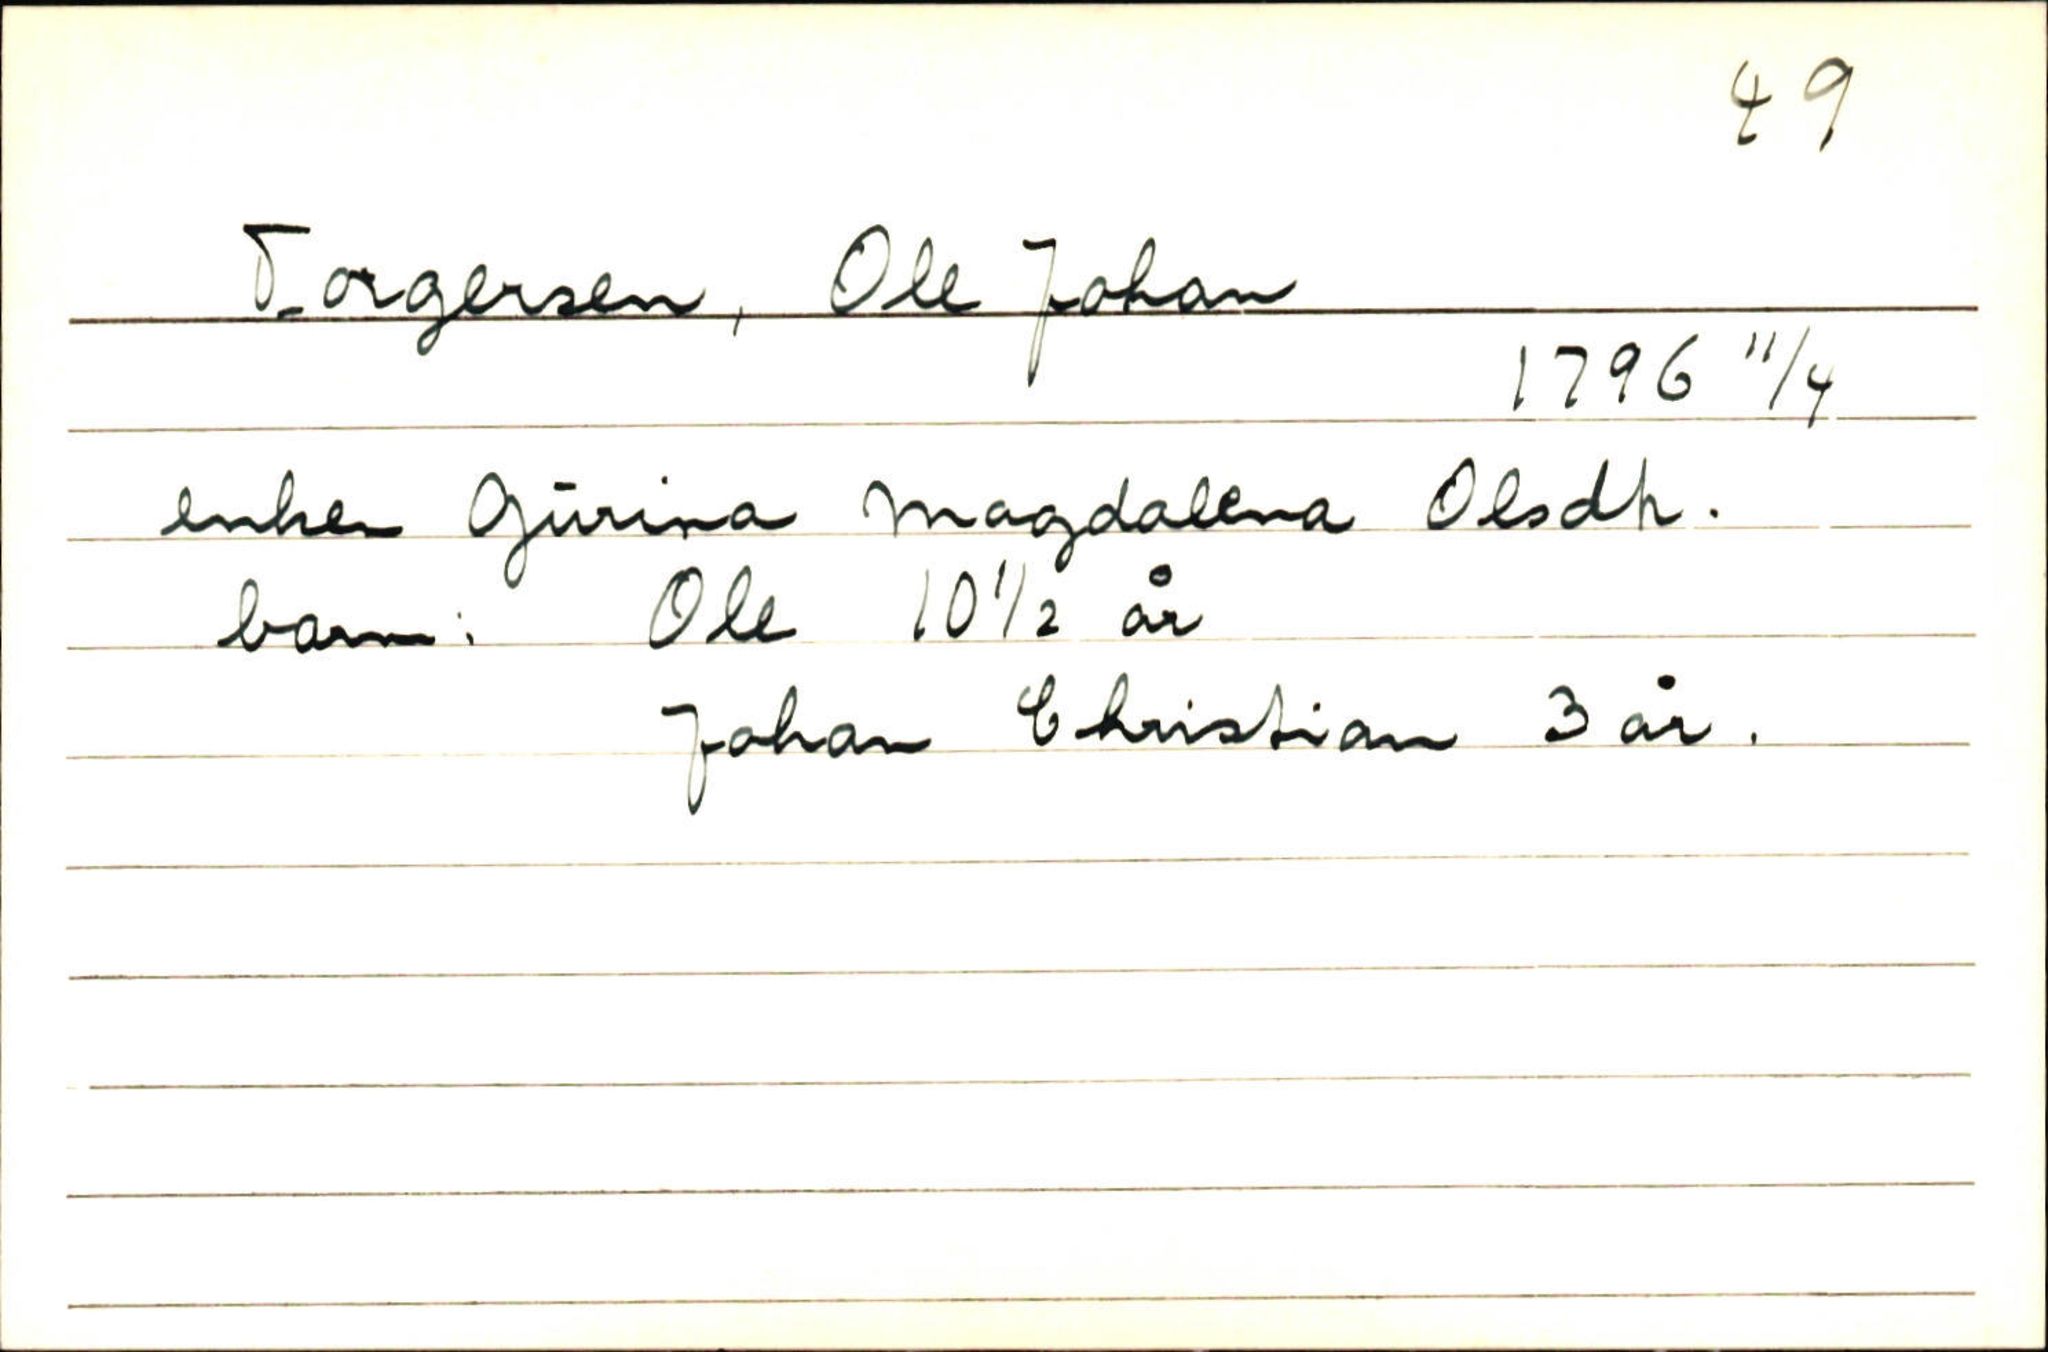 49
Torgersen, Ole Johan
1796 11/4
enken Gūrina Magdalena Olsdtr.
barn: Ole 10 1/2 år
Johan Christian 3 år.